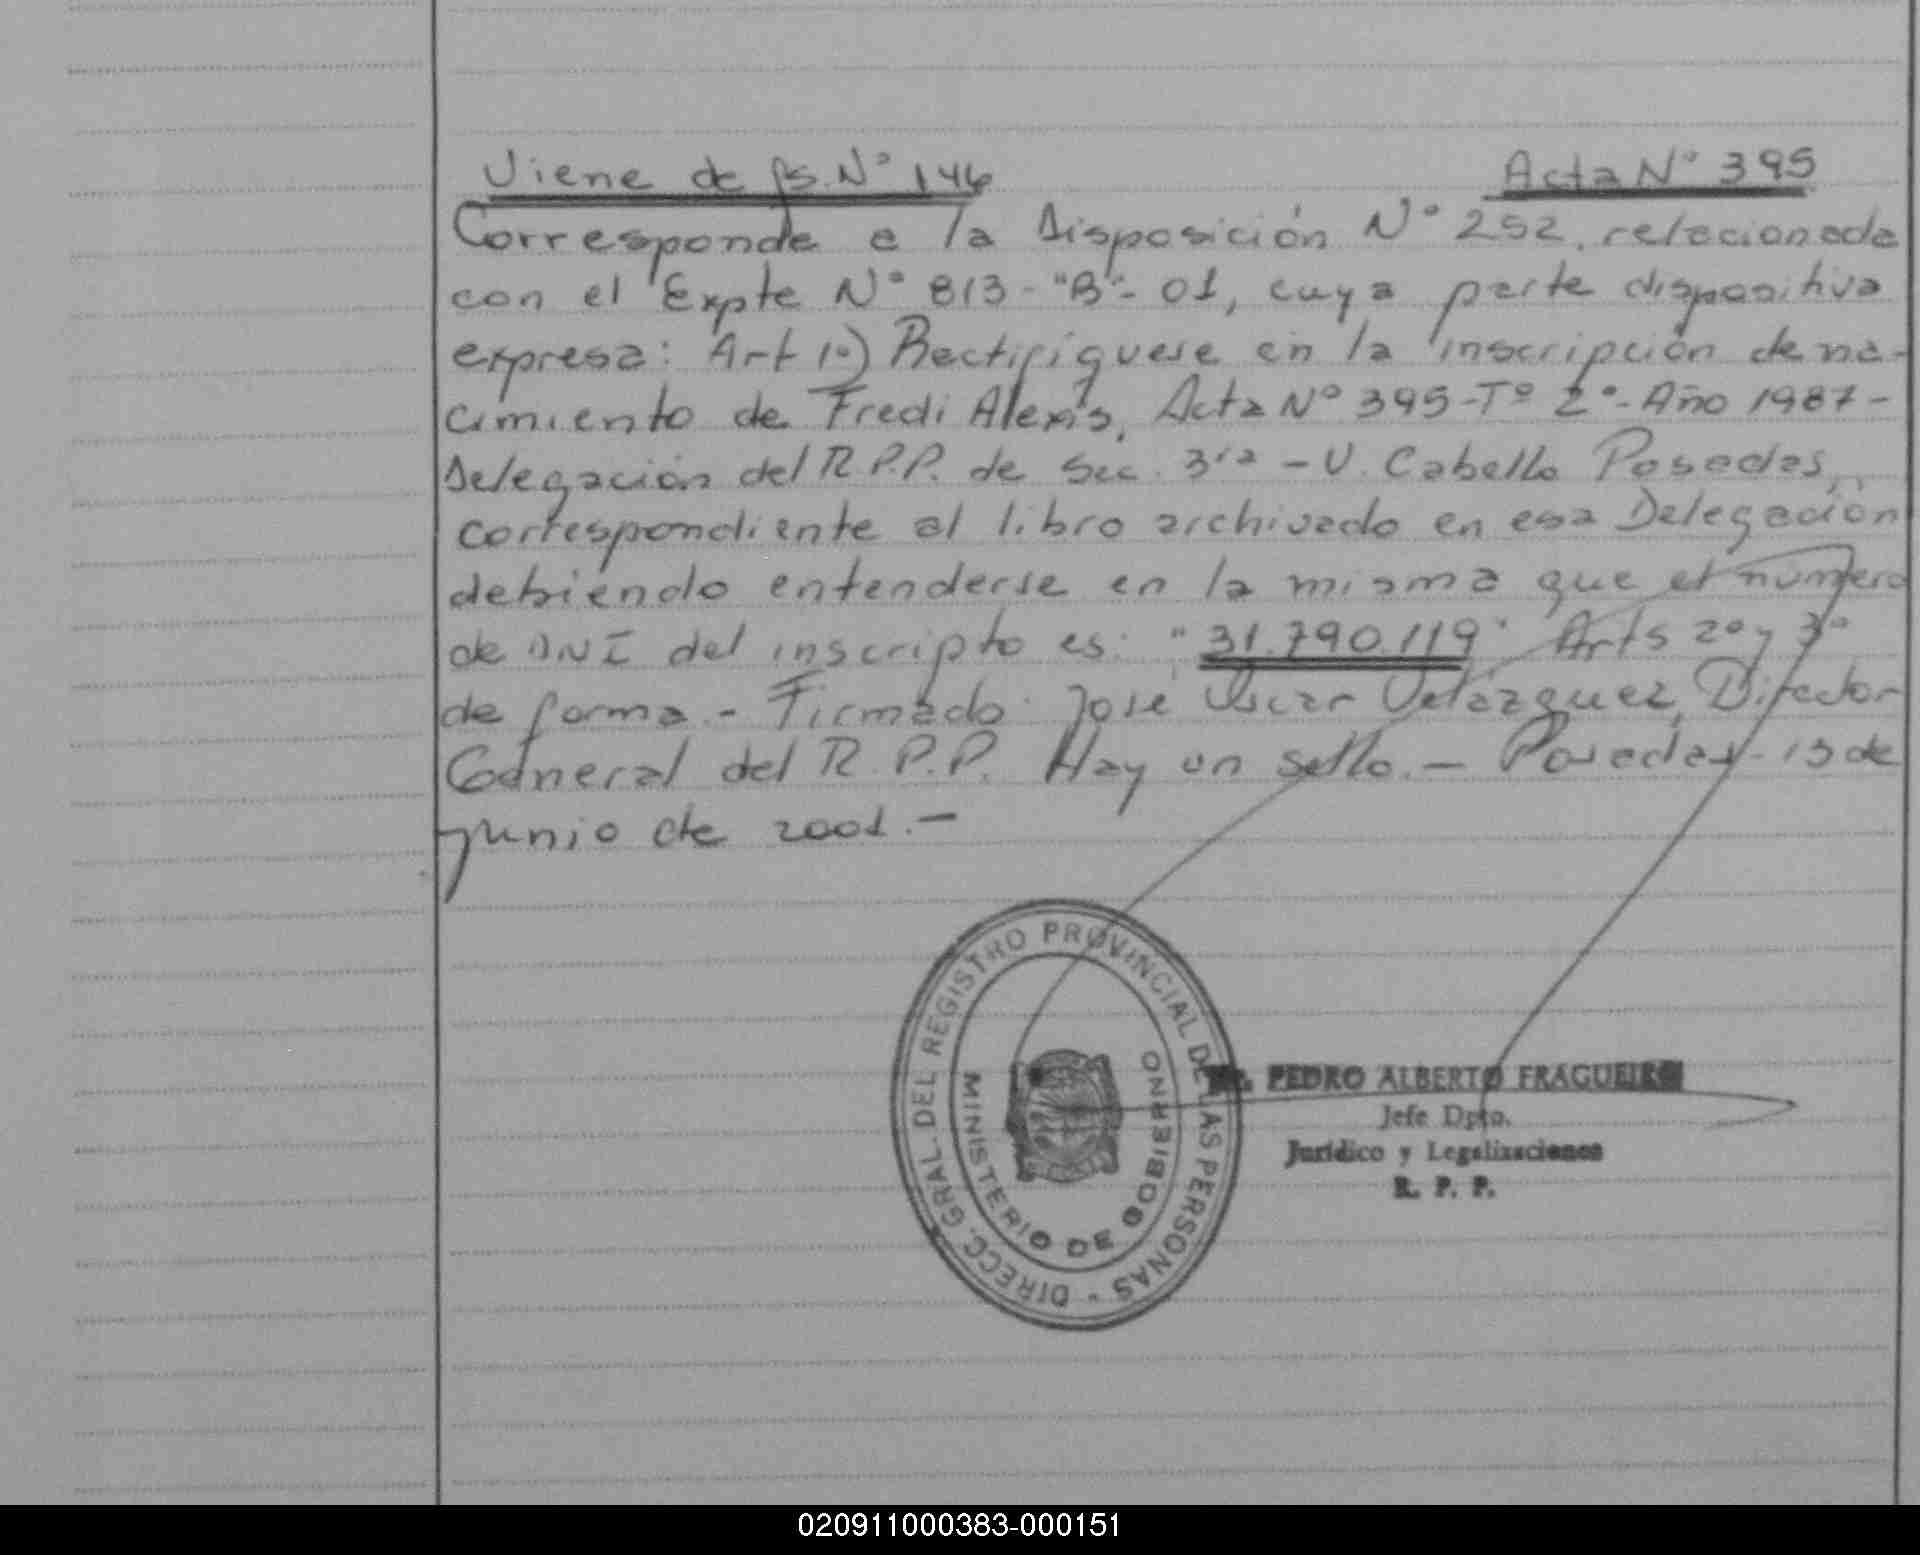 Viene de fs. N° 146 Acta N° 395
Corresponde a la Disposición N° 252, relacionada
con el Expte N° 813-"B"-01, cuya parte dispositiva
expresa: Art 1°) Rectifíquese en la inscripción de na-
cimiento de Fredi Alexis, Acta N° 395-T° 2°-Año 1987-
Delegación del R.P.P. de Sec. 3ra - V. Cabello Posadas,
correspondiente al libro archivado en esa Delegación
debiendo entenderse en la misma que el número
de DNI del inscripto es: "31.790.119" Arts 2° y 3°
de forma.- Firmado: José Oscar Velázquez, Director
General del R.P.P. Hay un sello.- Posadas- 13 de
junio de 2001.-
DIRECC. GRAL. DEL REGISTRO PROVINCIAL DE LAS PERSONAS -
MINISTERIO DE GOBIERNO
PEDRO ALBERTO FRAGUEIRO
Jefe Dpto.
Jurídico y Legalizaciones
R. P. P.
020911000383-000151